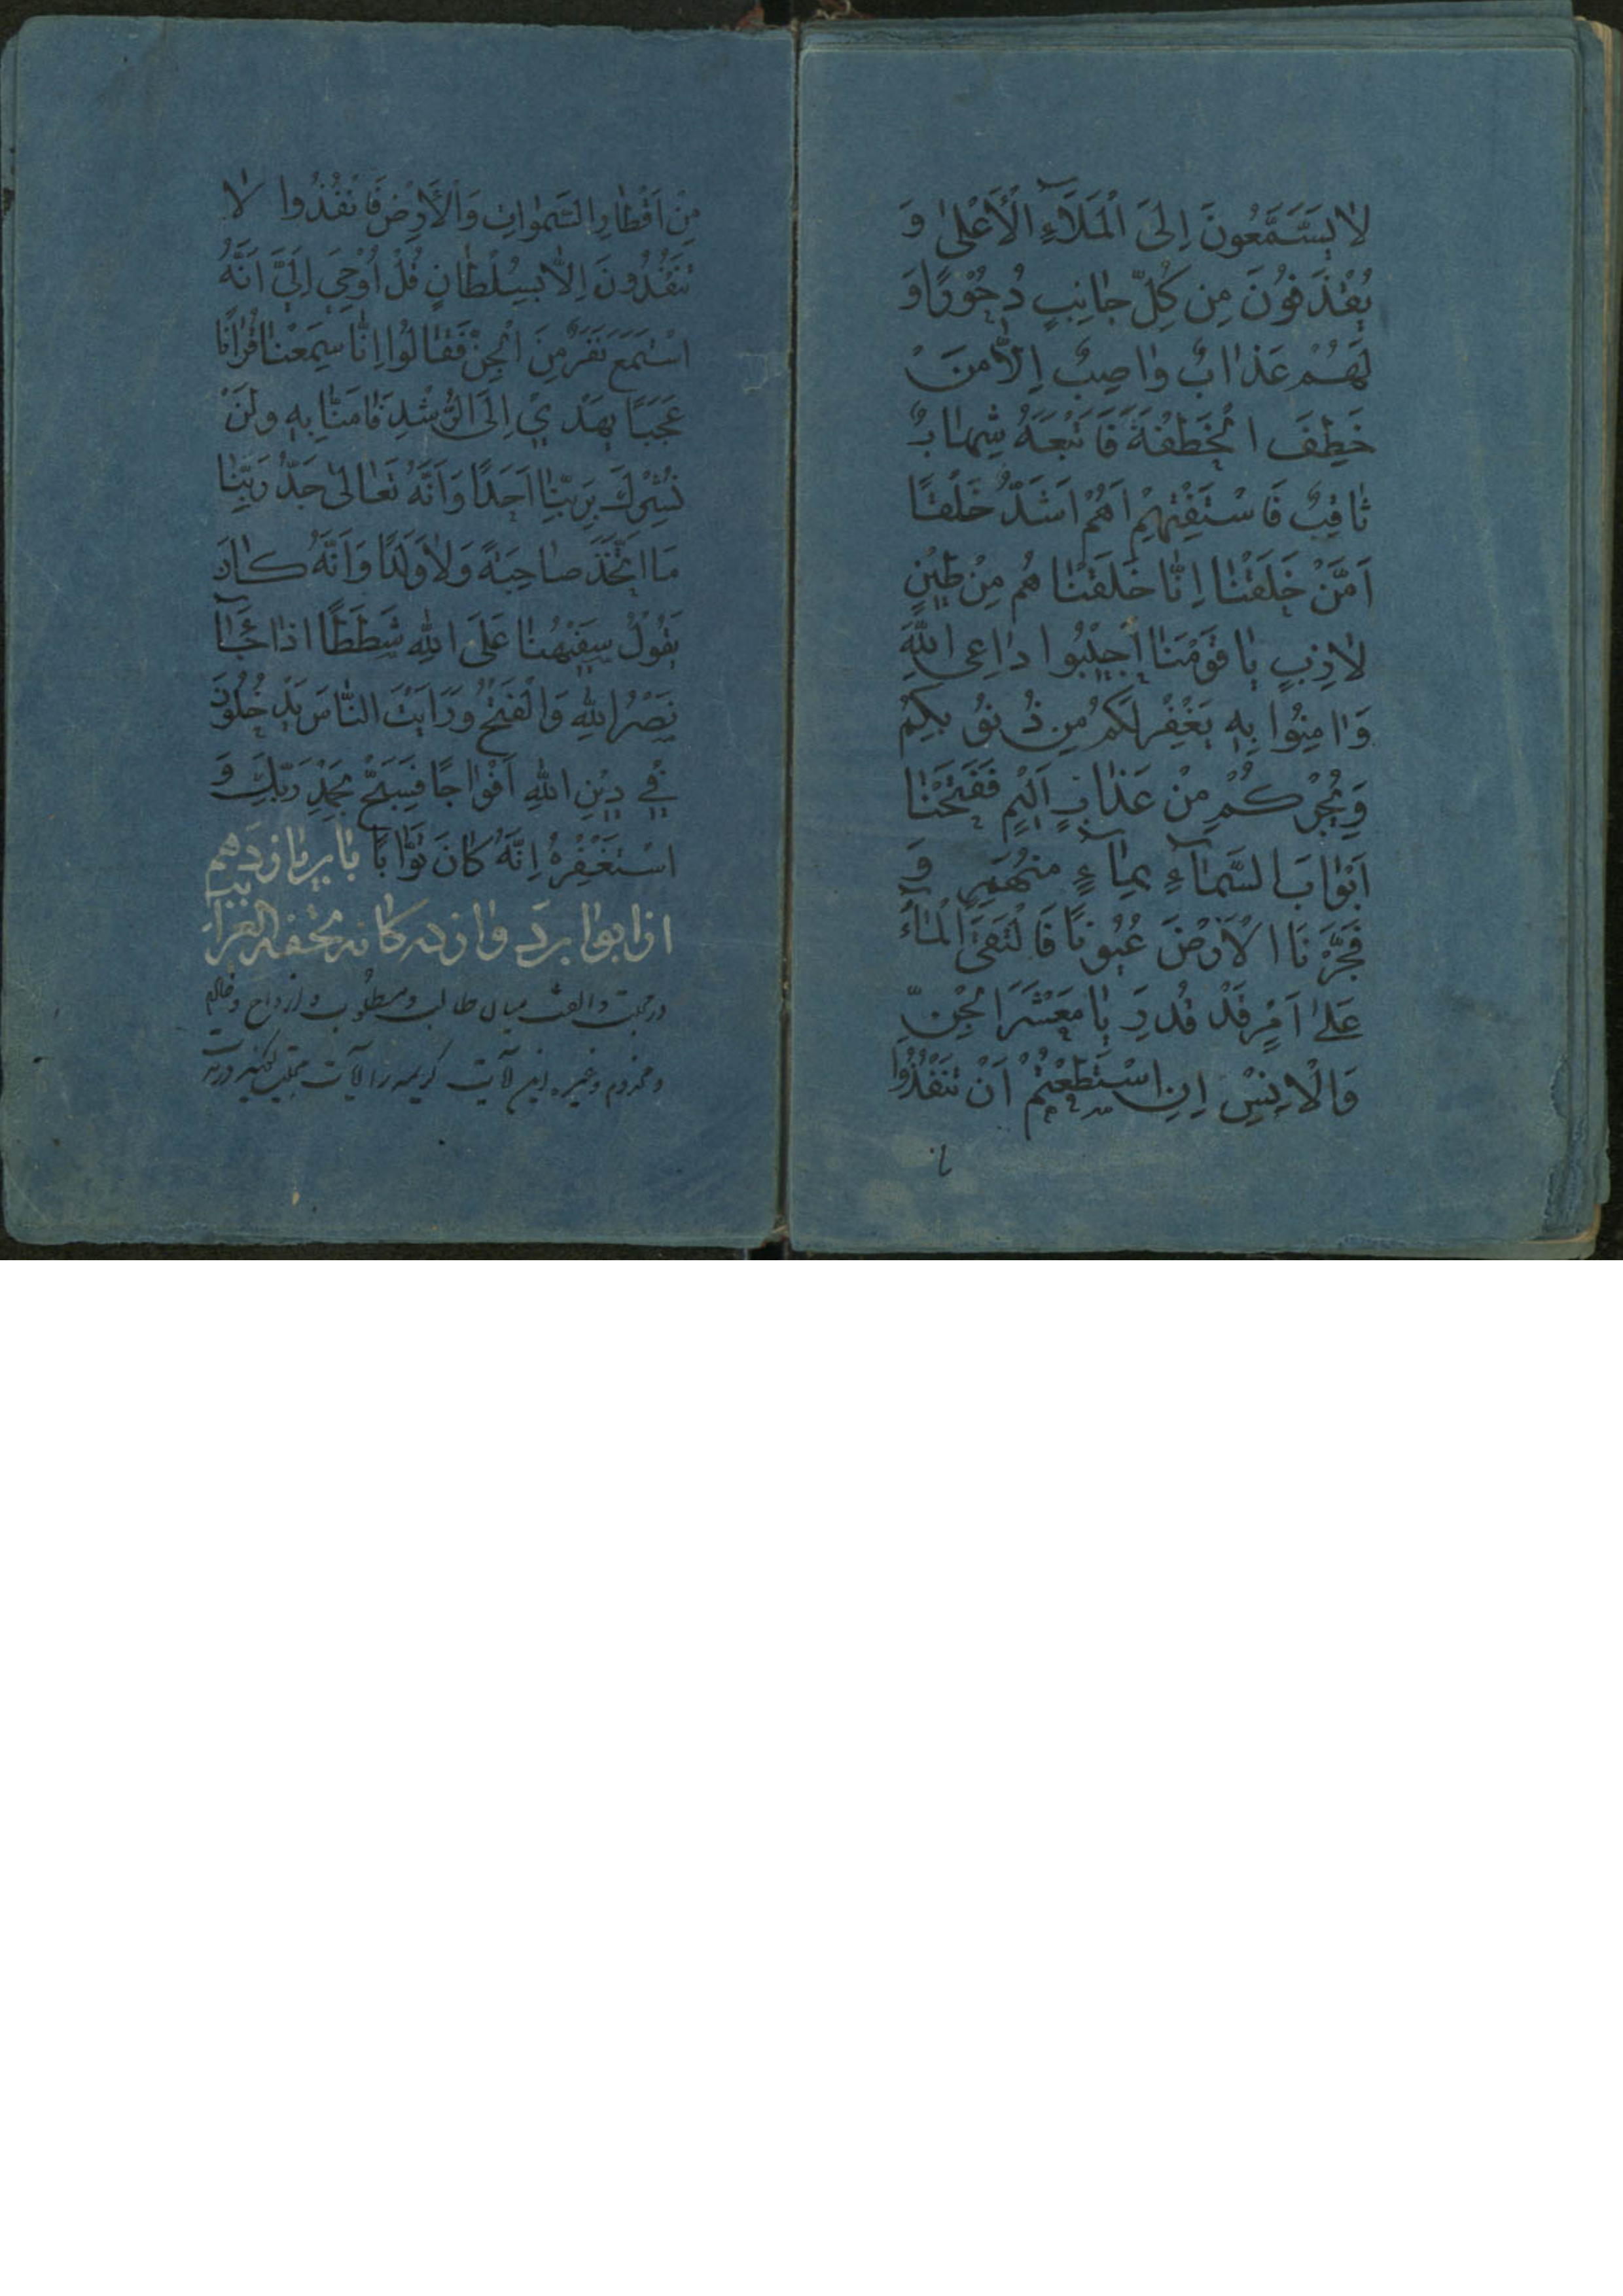 لا يَسَّمَّعُونَ اِلَى الْمَلَاءِ الْاَعْلىٰ وَ
يُقْذَفُونَ مِن كُلِّ جانِبٍ دُحُورًا وَ
لَهُمْ عَذابٌ واصِبٌ اِلَّا مَنْ
خَطِفَ الْخَطْفَةَ فَاَتْبَعَهُ شِهابٌ
ثاقِبٌ فَاسْتَفْتِهِمْ اَهُمْ اَشَدُّ خَلْقًا
اَمَّنْ خَلَقْنا اِنّا خَلَقْنا هُم مِنْ طينٍ
لازِبٍ يا قَوْمَنا اَجيبُوا داعِى اللّٰهِ
وَاامِنُوا بِهِ يَغْفِرْ لَكُم مِن ذُنُوبِكُمْ
وَيُجِرْكُم مِنْ عَذابٍ اَليمٍ فَفَتَحْنا
اَبْوابَ السَّماءِ بِماءٍ مُنْهَمِرٍ وَ
فَجَّرْنَا الْاَرْضَ عُيُونًا فَالْتَقَى الْماءُ
عَلىٰ اَمْرٍ قَدْ قُدِرَ يا مَعْشَرَ الْجِنِّ
وَالْاِنْسِ اِنِ اسْتَطَعْتُمْ اَنْ تَنْفُذُوا
مِنْ اَقْطارِ السَّمٰواتِ وَالْاَرْضِ فَانْفُذُوا لا
تَنْفُذُونَ اِلّا بِسُلْطانٍ قُلْ اُوْحِيَ اِلَيَّ اَنَّهُ
اسْتَمَعَ نَفَرٌ مِنَ الْجِنِّ فَقالُوا اِنّا سَمِعْنا قُرْانًا
عَجَبًا يَهْدي اِلَى الرُّشْدِ فَامَنّا بِهِ وَلَنْ
نُشْرِكَ بِرَبِّنا اَحَدًا وَاَنَّهُ تَعالىٰ جَدُّ رَبِّنا
مَا اتَّخَذَ صاحِبَةً وَلا وَلَدًا وَاَنَّهُ كانَ
يَقُولُ سَفيهُنا عَلَى اللّٰهِ شَطَطًا اذا جاءَ
نَصْرُ اللّٰهِ وَالْفَتْحُ وَرَاَيْتَ النّاسَ يَدْخُلُونَ
في دينِ اللّٰهِ اَفْواجًا فَسَبِّحْ بِحَمْدِ رَبِّكَ وَ
اسْتَغْفِرْهُ اِنَّهُ كانَ تَوّابًا باب يازدهم
از ابواب دوازده كانه تحفة الغرايب
در محبت و الفت ميان طالب و مطلوب و ازواج و خادم
و مخدوم و غيره اين آيت كريمه را آيات